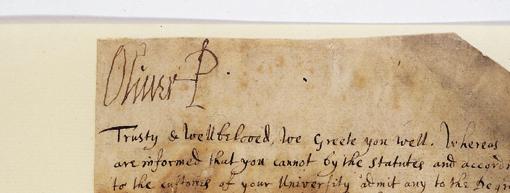 Oliver P
Trusty & Wellbeloved, We Greete you well. Whereas
are informed that you cannot by the Statutes and accord
to the customes of your University admit any to the Degr